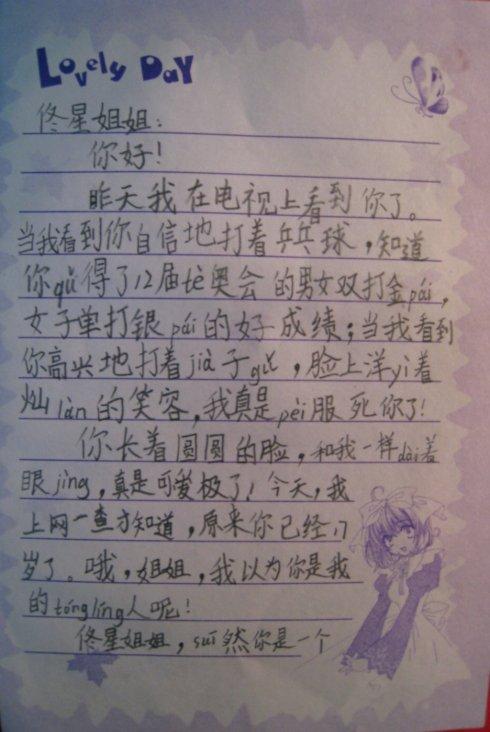 Lovely Day
佟星姐姐：
你好！
昨天我在电视上看到你了。
当我看到你自信地打着乒乓球，知道
你qǔ得了12届tè奥会的男女双打金pái，
女子单打银pái的好成绩；当我看到
你高兴地打着jià子gǔ，脸上洋yì着
灿làn的笑容，我真是pèi服死你了！
你长着圆圆的脸，和我一样dài着
眼jìng，真是可爱极了！今天，我
上网一查才知道，原来你已经17
岁了。哦，姐姐，我以为你是我
的tónglíng人呢！
佟星姐姐，suī然你是一个